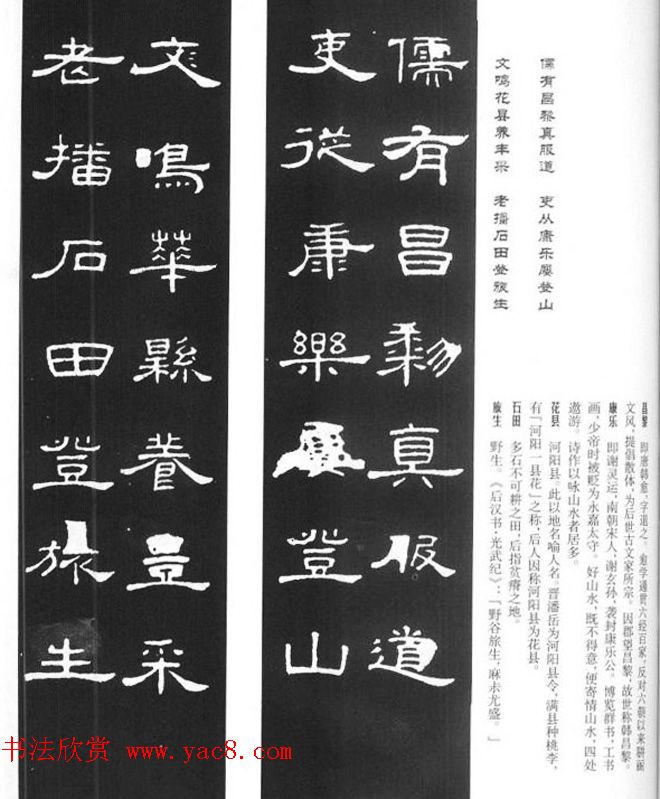 儒有昌黎真服道　吏从康乐屡登山
文鸣花县养丰采　老播石田登旅生
儒有昌黎真服道
吏從康樂屢登山
文鳴華縣養豊采
老播石田登旅生
昌黎　即唐韩愈，字退之。愈学通贯六经百家，反对六朝以来骈丽
文风，提倡散体，为后世古文家所宗。因郡望昌黎，故世称韩昌黎。
康乐　即谢灵运，南朝宋人，谢玄孙，袭封康乐公。博览群书，工书
画，少帝时被贬为永嘉太守。好山水，既不得意，便寄情山水，四处
遨游。诗作以咏山水者居多。
花县　河阳县。此以地名喻人名。晋潘岳为河阳县令，满县种桃李，
有「河阳一县花」之称，后人因称河阳县为花县。
石田　多石不可耕之田，后指贫瘠之地。
旅生　野生。《后汉书·光武纪》：「野谷旅生，麻尗尤盛。」
书法欣赏 www.yac8.com